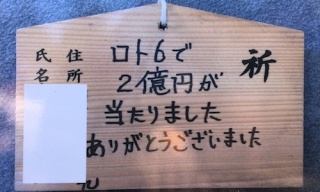 祈
ロト6で
2億円が
当たりました
ありがとうございました
住所
氏名